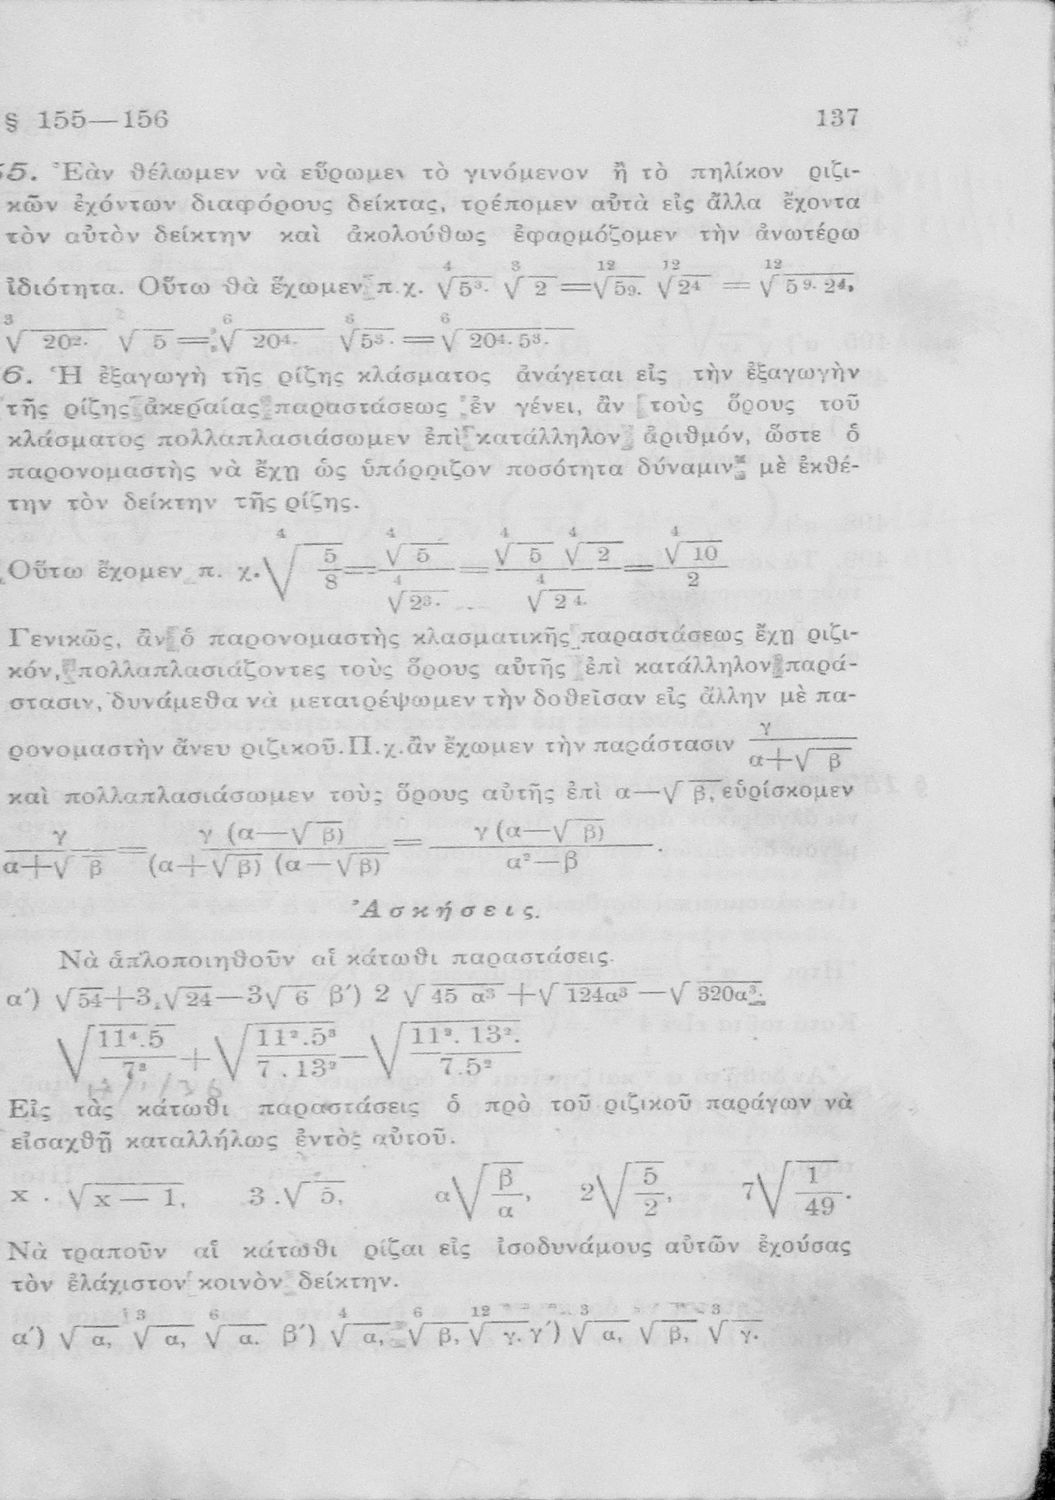 § 155—156 137
55. Ἐὰν θέλωμεν νὰ εὕρωμεν τὸ γινόμενον ἢ τὸ πηλίκον ριζι-
κῶν ἐχόντων διαφόρους δείκτας, τρέπομεν αὐτὰ εἰς ἄλλα ἔχοντα
τὸν αὐτὸν δείκτην καὶ ἀκολούθως ἐφαρμόζομεν τὴν ἀνωτέρω
ἰδιότητα. Οὕτω θὰ ἔχωμεν π.χ. ⁴√5³· ³√2 = ¹²√5⁹· ¹²√2⁴ = ¹²√5⁹·2⁴,
³√20²· √5 = ⁶√20⁴· ⁶√5³· = ⁶√20⁴·5³·
6. Ἡ ἐξαγωγὴ τῆς ρίζης κλάσματος ἀνάγεται εἰς τὴν ἐξαγωγὴν
τῆς ρίζης ἀκεραίας παραστάσεως ἐν γένει, ἂν τοὺς ὅρους τοῦ
κλάσματος πολλαπλασιάσωμεν ἐπὶ κατάλληλον ἀριθμόν, ὥστε ὁ
παρονομαστὴς νὰ ἔχῃ ὡς ὑπόρριζον ποσότητα δύναμιν μὲ ἐκθέ-
την τὸν δείκτην τῆς ρίζης.
Οὕτω ἔχομεν π. χ. ⁴√5/8 = ⁴√5/⁴√2³· = ⁴√5 ⁴√2/⁴√2⁴· = ⁴√10/2
Γενικῶς, ἂν ὁ παρονομαστὴς κλασματικῆς παραστάσεως ἔχῃ ριζι-
κόν, πολλαπλασιάζοντες τοὺς ὅρους αὐτῆς ἐπὶ κατάλληλον παρά-
στασιν, δυνάμεθα νὰ μετατρέψωμεν τὴν δοθεῖσαν εἰς ἄλλην μὲ πα-
ρονομαστὴν ἄνευ ριζικοῦ. Π.χ. ἂν ἔχωμεν τὴν παράστασιν γ/α+√β
καὶ πολλαπλασιάσωμεν τοὺς ὅρους αὐτῆς ἐπὶ α—√β, εὑρίσκομεν
γ/α+√β = γ (α—√β)/(α+√β) (α—√β) = γ (α—√β)/α²—β.
Ἀσκήσεις.
Νὰ ἁπλοποιηθοῦν αἱ κάτωθι παραστάσεις.
α′) √54+3.√24—3√6 β′) 2 √45 α³+√124α³—√320α³.
√11⁴.5/7³ + √11².5³/7.13² — √11³. 13²./7.5²
Εἰς τὰς κάτωθι παραστάσεις ὁ πρὸ τοῦ ριζικοῦ παράγων νὰ
εἰσαχθῇ καταλλήλως ἐντὸς αὐτοῦ.
x . √x — 1, 3 .√5, α√β/α, 2√5/2, 7√1/49.
Νὰ τραποῦν αἱ κάτωθι ρίζαι εἰς ἰσοδυνάμους αὐτῶν ἐχούσας
τὸν ἐλάχιστον κοινὸν δείκτην.
α′) √α, ³√α, ⁶√α. β′) ⁴√α, ⁶√β, ¹²√γ. γ′) ³√α, √β, ³√γ.